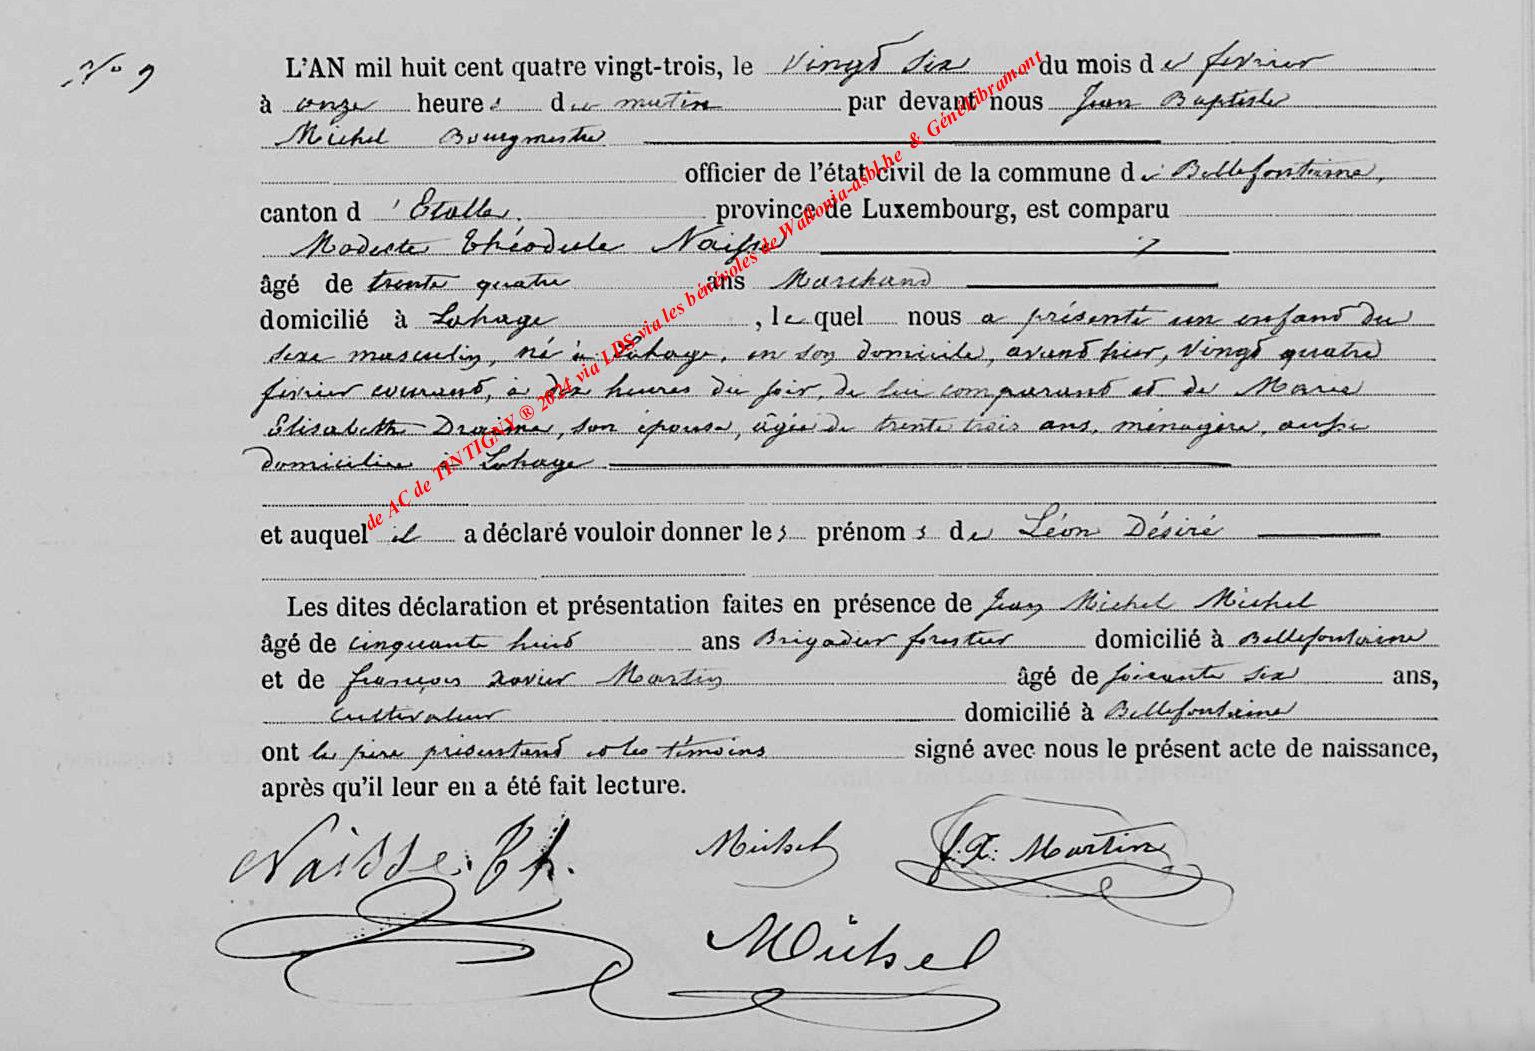 No 9
L'AN mil huit cent quatre vingt-trois, le vingt six du mois de février
à onze heures du matin par devant nous Jean Baptiste
Michel Bourgmestre
officier de l'état civil de la commune de Bellefontaine,
canton d'Etalle. province de Luxembourg, est comparu
Modeste Théodule Naisse
âgé de trente quatre ans Marchand
domicilié à Lahage, lequel nous a présenté un enfant du
sexe masculin, né à Lahage, en son domicile, avant hier, vingt quatre
février courant, à dix heures du soir, de lui comparant et de Marie
Elisabeth Draime, son épouse, âgée de trente trois ans, ménagère, aussi
domiciliée à Lahage
et auquel il a déclaré vouloir donner les prénoms de Léon Désiré
Les dites déclaration et présentation faites en présence de Jean Michel Michel
âgé de cinquante huit ans Brigadier forestier domicilié à Bellefontaine
et de françois Xavier Martin âgé de soixante six ans,
cultivateur domicilié à Bellefontaine
ont le père présentant et les témoins signé avec nous le présent acte de naissance,
après qu'il leur en a été fait lecture.
Naisse. Th. Michel f. X. Martin
Michel
de AC de TINTIGNY ® 2024 via LDS via les bénévoles de Wallonia-asbl.be & GénéLibramont